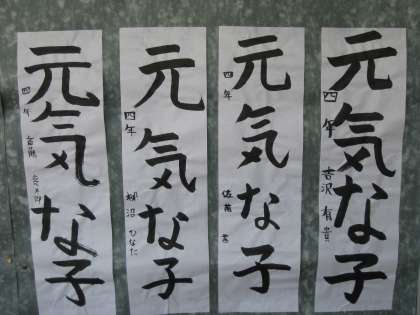 元気な子
四年
元気な子
四年 柳沼 ひなた
元気な子
四年 佐藤
元気な子
四年 吉沢 有貴